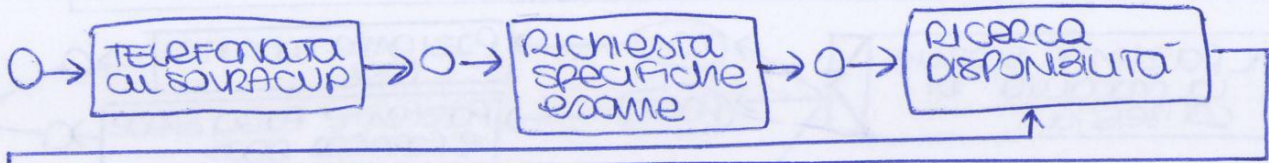 TELEFONATA
al SOVRACUP
RICHIESTA
SPECIFICHE
esame
RICERCA
DISPONIBILITà